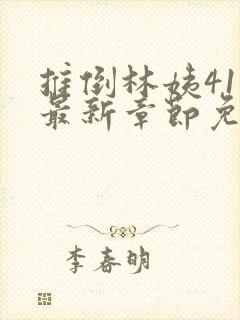 推倒林姨41
最新章节免
李春明